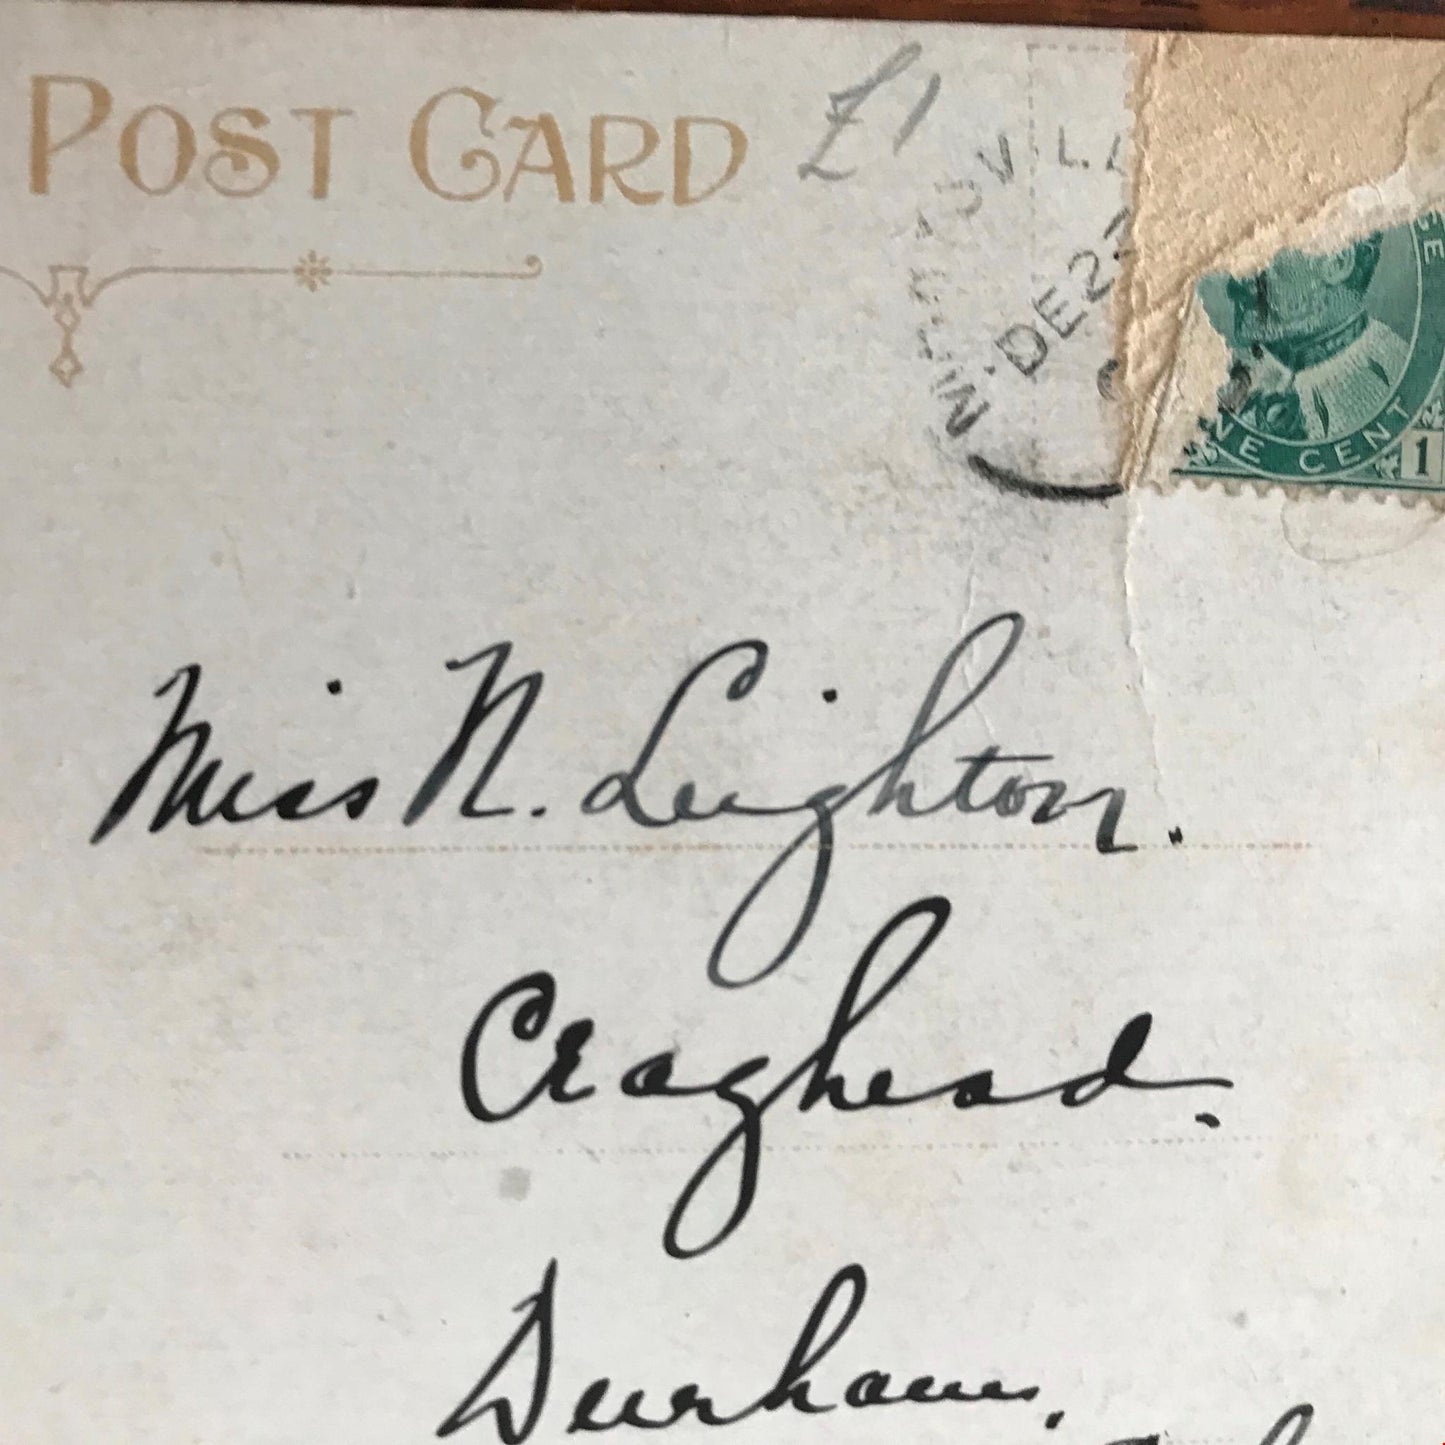 POST CARD
£1
DE 23
ONE CENT
1
Miss N. Leighton.
Craghead.
Durham.